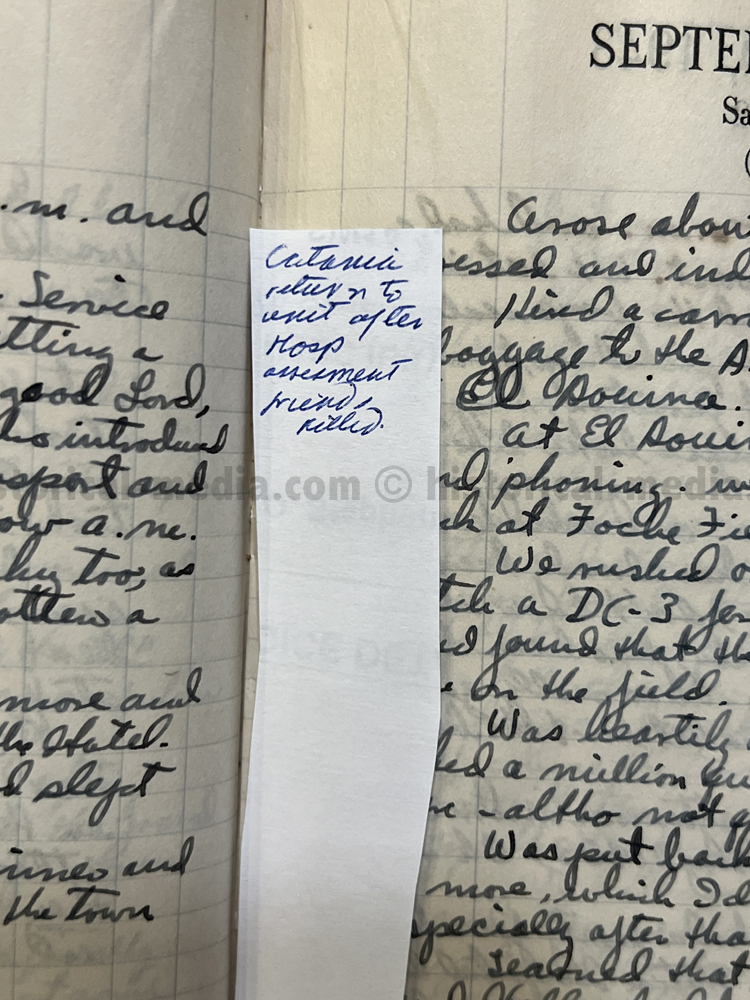 .m. and
Service
tting a
good Lord,
ho introduced
nsport and
ow a.m.
too, as
otten a
more and
the Hotel.
d slept
and
the town
Catania
return to
unit after
Hosp
assessment
friends
killed.
SEPTE
Sa
(
Arose abou
essed and ind
Hired a carr
baggage to the A
El Aouina.
at El Aouin
nd phoning.
ck at Foche Fie
We rushed o
tch a DC-3 fer
nd found that th
e on the field.
Was heartily
ed a million que
- altho not a
Was put back
more, which I d
specially after tha
Learned that
historicalmedia.com © historicalmedia